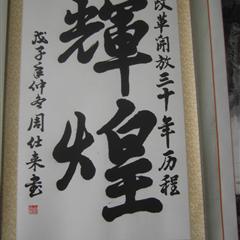 改革開放三十年历程
輝煌
戊子年仲冬周仕来书